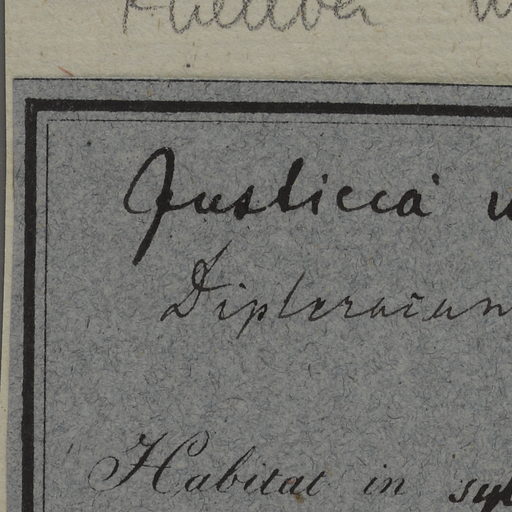 Justicia
Dipteracan
Habitat in syl